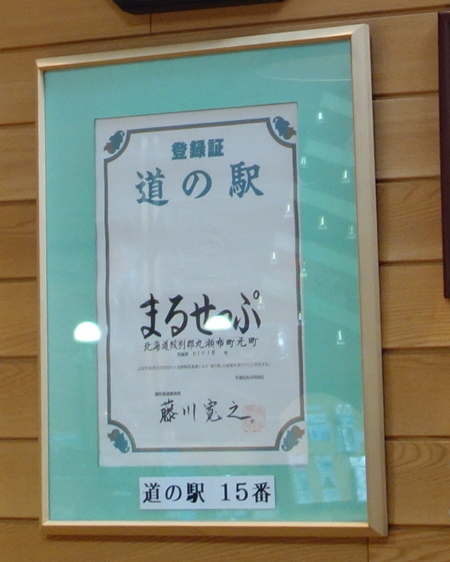 登録証
道の駅
まるせっぷ
北海道紋別郡丸瀬布町元町
藤川寛之
道の駅 15番